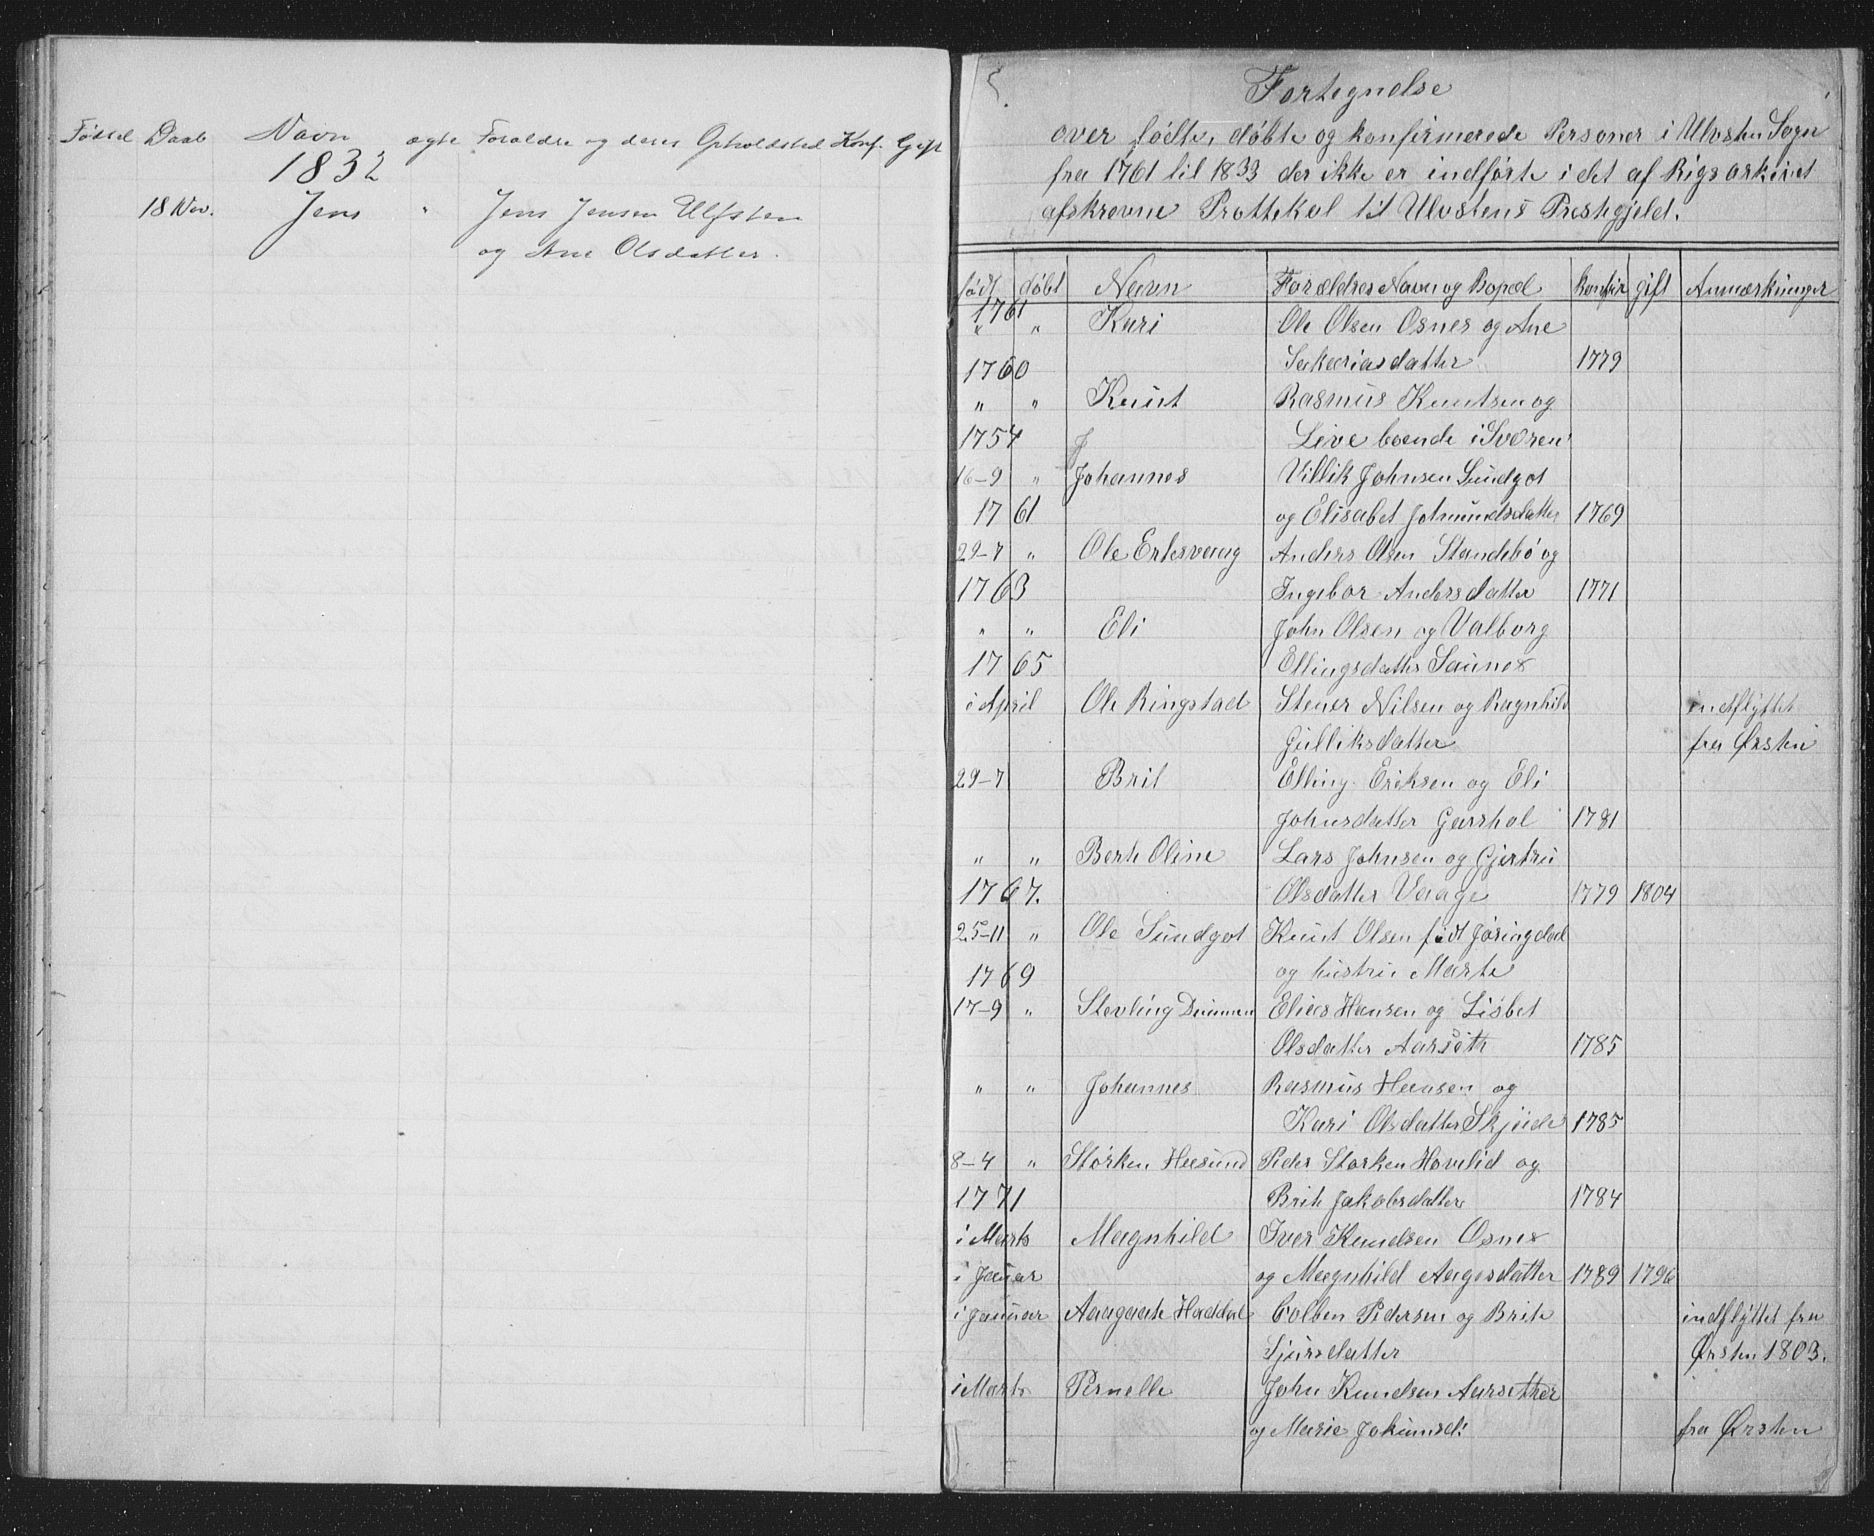 Fødsel Daab Navn ægte Forældre og deres Opholdsted Konf. Gift
1832
18 Nov. Jens " Jens Jensen Ulfsten
og Ane Olsdatter.
Fortegnelse
over fødte, døbte og konfirmerede Personer i Ulvsten Sogn
fra 1761 til 1833 der ikke er indførte i det af Rigsarkivet
afskrevne Prottekol til Ulvstens Prestegjeld.
født døbt Navn Forældres Navn og Bopæl konfir gift Anmærkninger
1761
" " Kari Ole Olsen Osnes og Ane
1760 Sakariasdatter 1779
" " Knut Rasmus Knutsen og
1754 Live boende i Svoren
16-9 " Johannes Villik Johnsen Sundgot
1761 og Elisabet Jotmundsdatter 1769
29-7 " Ole Eriksvaag Anders Olsen Standebø og
1763 Ingebor Andersdatter 1771
" " Eli John Olsen og Valborg
1765 Ellingsdatter Saunes
i April Ole Ringstad Stener Nilsen og Ragnhild indflyttet
Gulliksdatter fra Ørsten
29-7 Brit Elling Eriksen og Eli
Johnsdatter Garshol 1781
" " Berte Oline Lars Johnsen og Gjertru
1767. Olsdatter Vaage 1779 1804
25-11 " Ole Sundgot Knut Olsen født Jøringdal
1769 og hustru Marte
17-9 " Stevling Dimmen Elias Hansen og Lisbet
Olsdatter Aarseth 1785
" " Johannes Rasmus Hansen og
Kari Olsdatter Skjeide 1785
8-4 " Størken Hasund Peder Størken Hovelid og
1771 Brite Jakobsdatter 1784
i Marts Magnhild Iver Knudsen Osnes
i Januar og Magnhild Aagesdatter 1789 1796
i Januar Aagaate Haddal Colben Pedersen og Brite indflyttet fra
Sjursdatter Ørsten 1803.
i Marts Pernelle John Knudsen Aarsether
og Marie Jokumsd: fra Ørsten